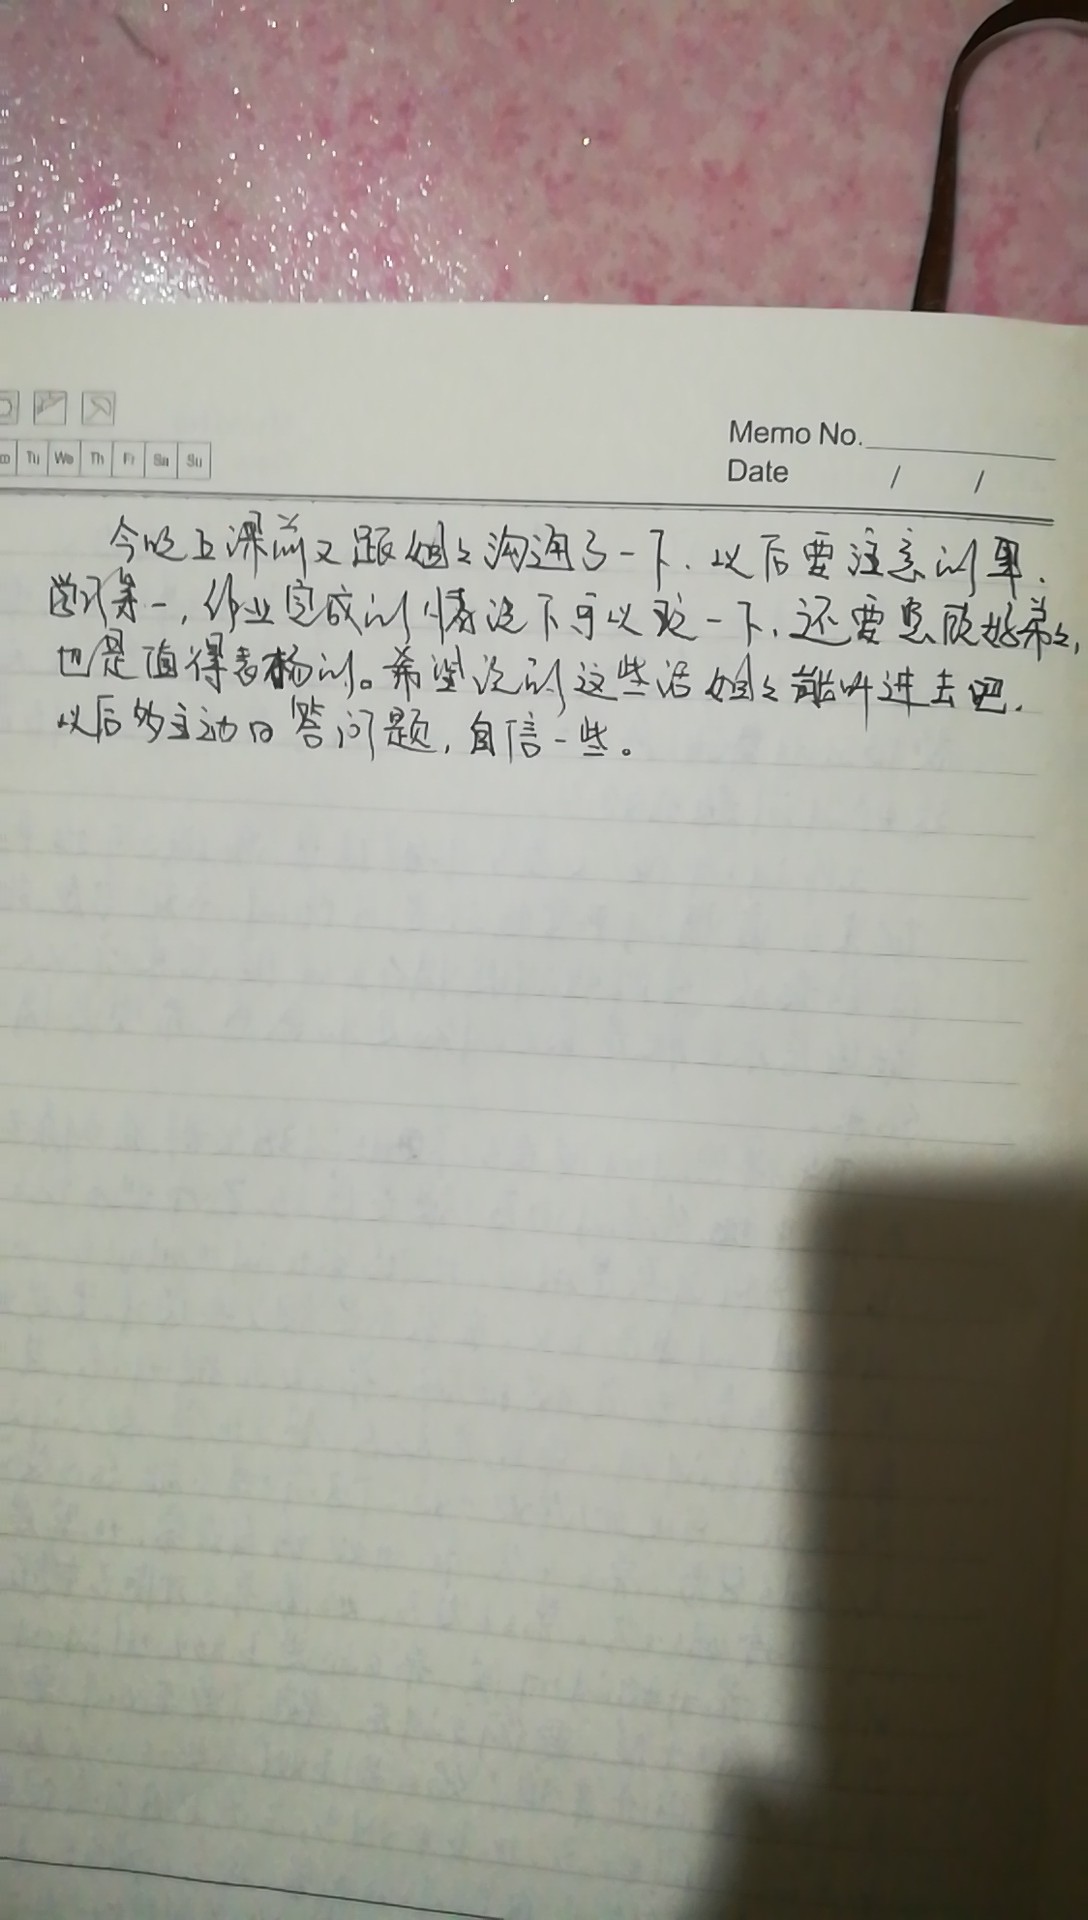 Memo No.
Tu We Th Fr Sa Su
Date / /
今晚上课前又跟姐姐沟通了一下.以后要注意的事.
学习第一,作业完成的情况下可以玩一下,还要照顾好弟弟,
也是值得表扬的。希望说的这些话姐姐能听进去吧.
以后多主动回答问题,自信一些。